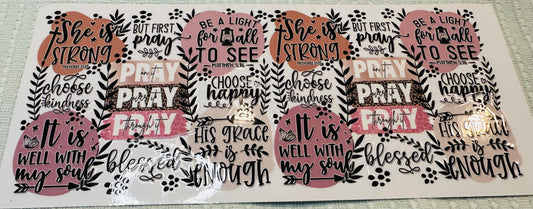 She is
STRONG
PROVERBS 31:25
choose
kindness
It is
WELL WITH
my soul
BUT FIRST
pray
PRAY
on it
PRAY
over it
PRAY
through it
blessed
BE A LIGHT
for all
TO SEE
MATTHEW 5:16
CHOOSE
happy
HIS GRACE
is
ENOUGH
She is
STRONG
PROVERBS 31:25
choose
kindness
It is
WELL WITH
my soul
BUT FIRST
pray
PRAY
on it
PRAY
over it
PRAY
through it
blessed
BE A LIGHT
for all
TO SEE
MATTHEW 5:16
CHOOSE
happy
HIS GRACE
is
ENOUGH